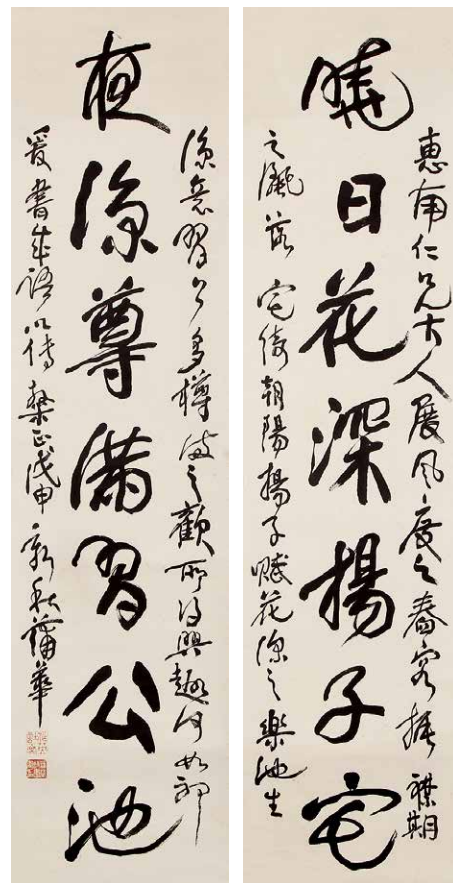 曉日花深揚子宅
惠南仁兄大人展風度之春容振襟期
之瀟落宅倚朝陽揚子賦花深之樂池生
夜涼尊滿習公池
涼意習公多樽滿之歡所得興趣何如耶
爰書成語以待粲正戊申新秋蒲華